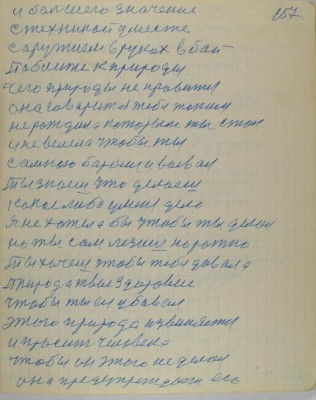 и большего значение 157
с техникой уместе
с аружием в руках в бой
Поближе к природы
чего природы не нравится
она говарит я тебя таким
не раждала которым ты стал
и не велела чтобы ты
са мною баролси и воевал
Ты знаеш что делаеш
какое либо умеш дело
Я не хотела бы чтобы ты делал
но ты сам лезиш
Ты хочеш чтобы тебя давала
природа твое здоровие
чтобы ты ей убивал
этого природа извиняется
и просит человека
чтобы он этого не делал
она предупреждала